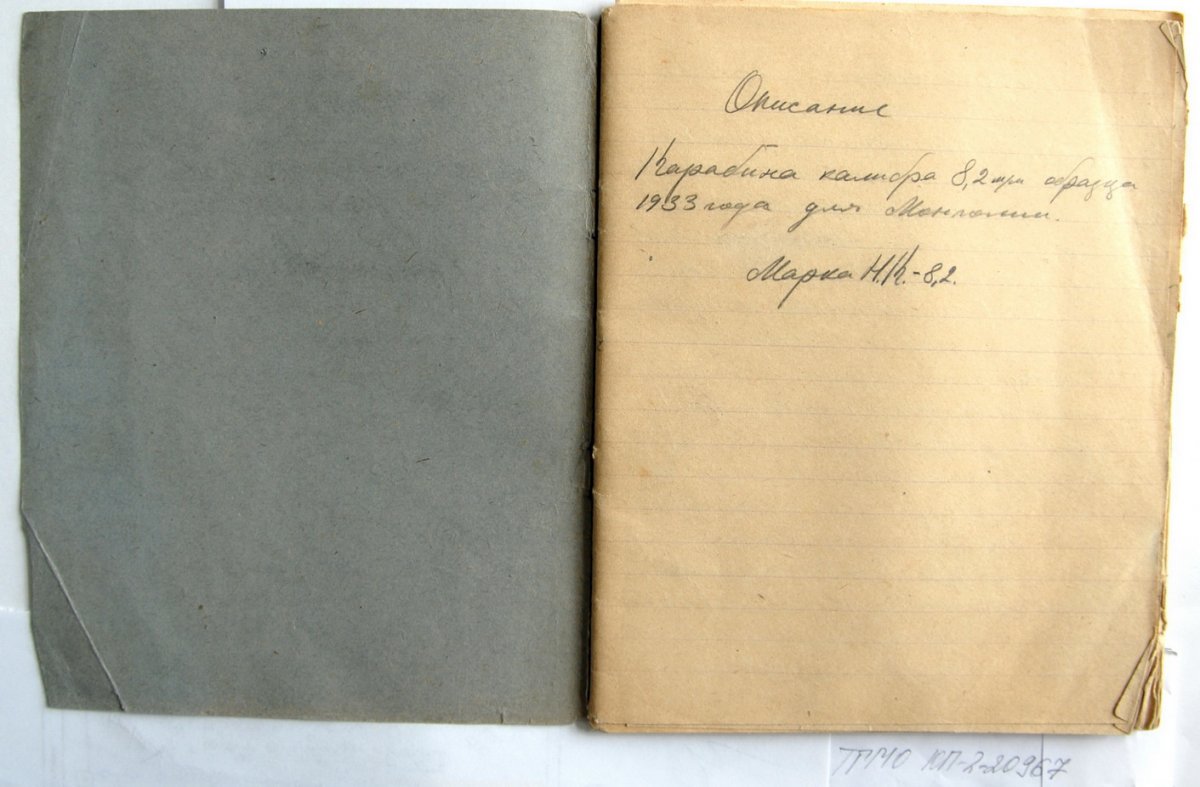 Описание
Карабина калибра 8,2 мм образца
1933 года для Монголии.
Марка Н.К.-8,2.
ТГМО КП-2-20967